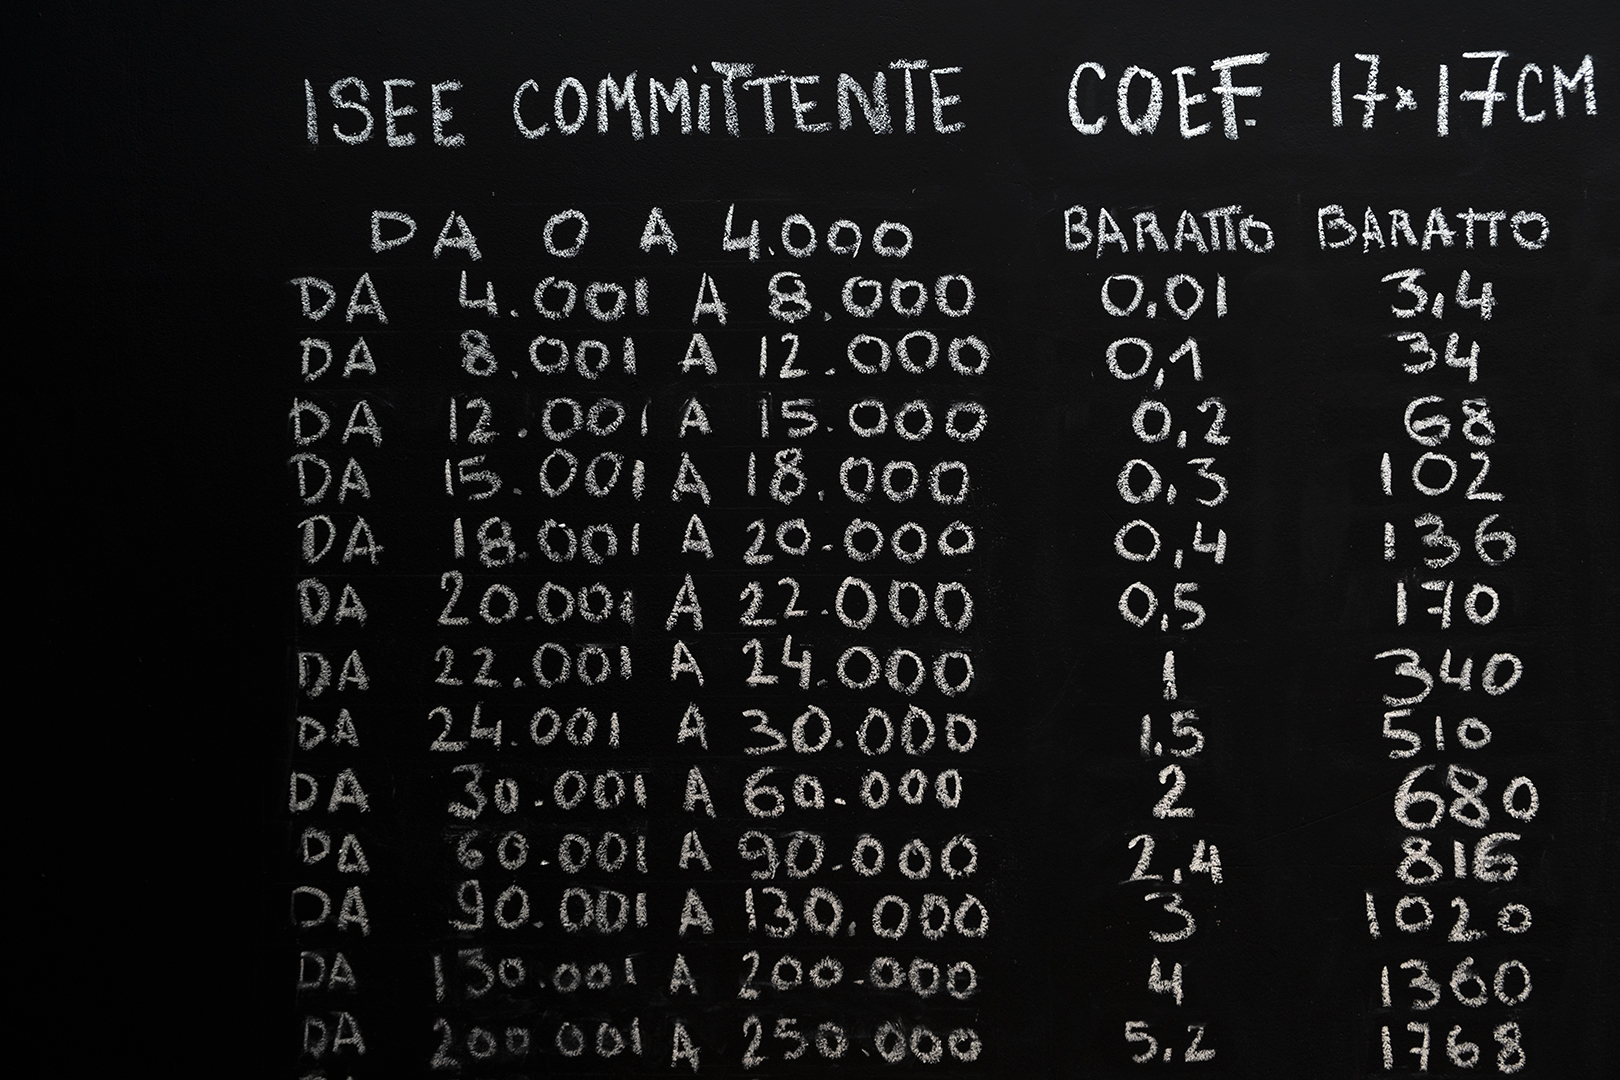 ISEE COMMITTENTE COEF. 17x17CM
DA 0 A 4.000 BARATTO BARATTO
DA 4.001 A 8.000 0,01 3,4
DA 8.001 A 12.000 0,1 34
DA 12.001 A 15.000 0,2 68
DA 15.001 A 18.000 0,3 102
DA 18.001 A 20.000 0,4 136
DA 20.001 A 22.000 0,5 170
DA 22.001 A 24.000 1 340
DA 24.001 A 30.000 1.5 510
DA 30.001 A 60.000 2 680
DA 60.001 A 90.000 2,4 816
DA 90.001 A 130.000 3 1020
DA 130.001 A 200.000 4 1360
DA 200 001 A 250.000 5,2 1768